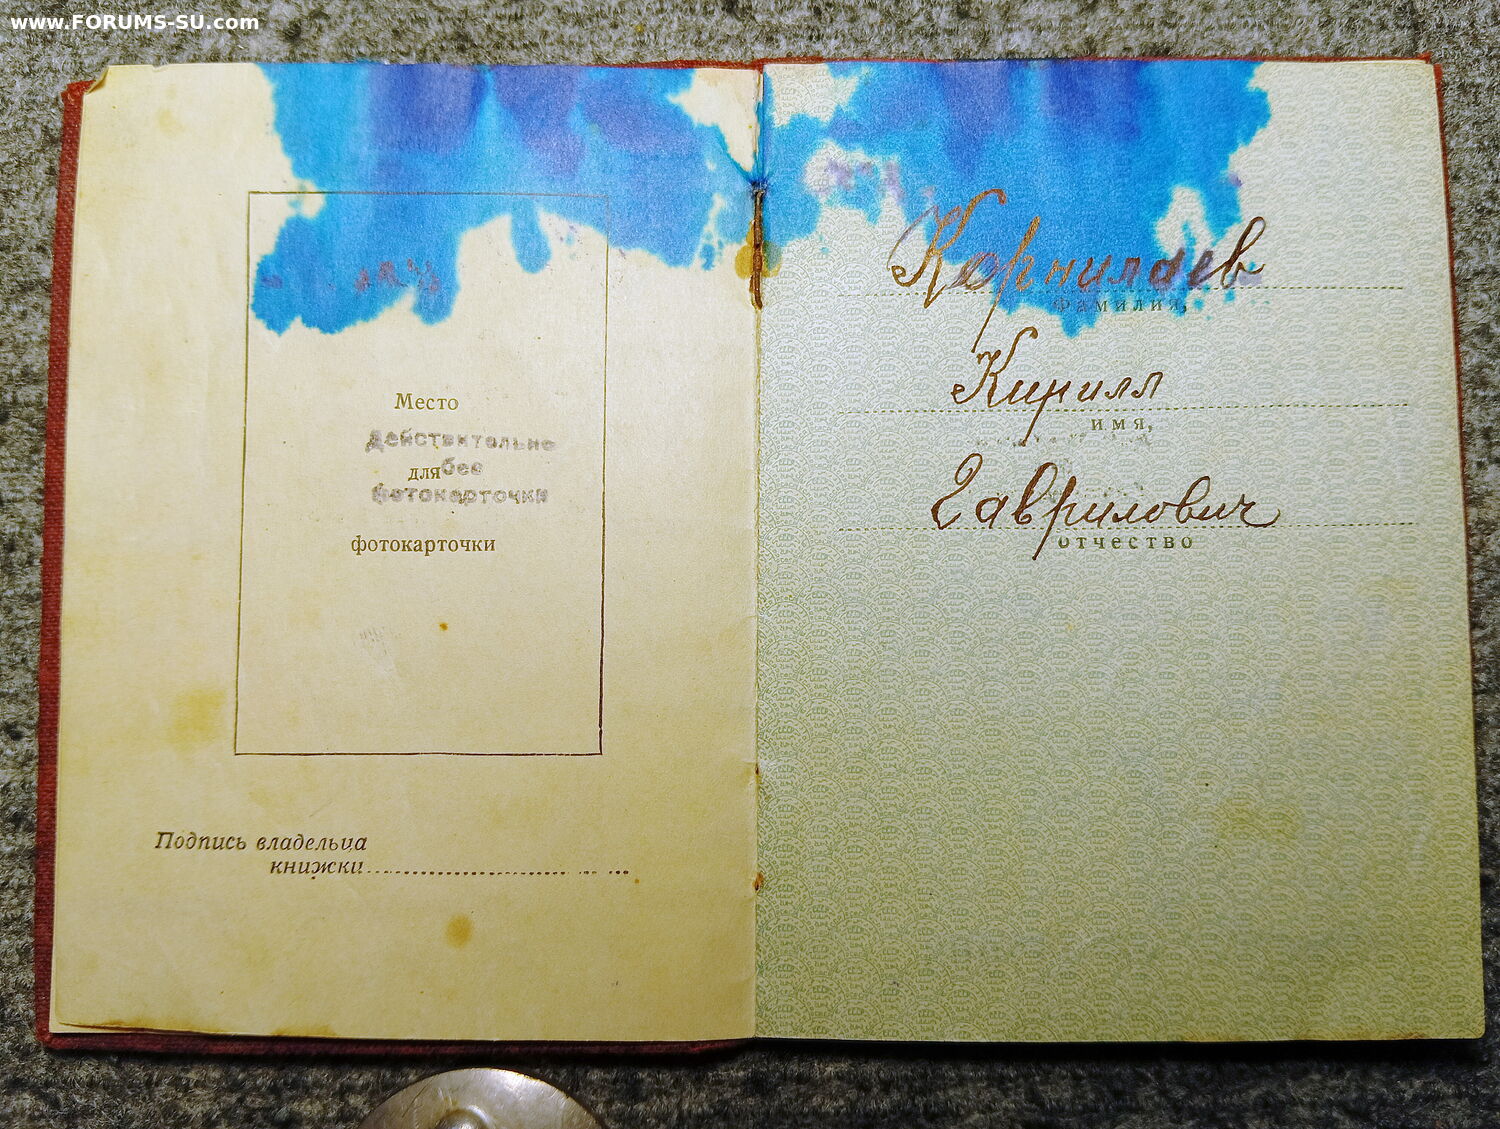 www.FORUMS-SU.com
Место
Действительно
для без
фотокарточки
фотокарточки
Подпись владельца
книжки
Корнилаев
фамилия,
Кирилл
имя,
Гаврилович
отчество